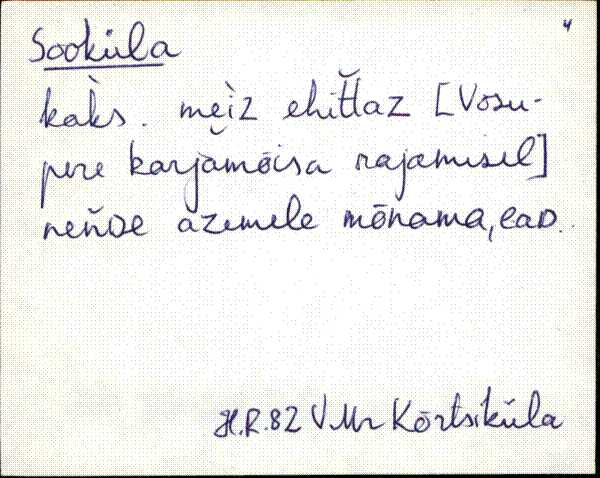 4
Sooküla
kàks. mèiz ehiťťaz [Vosu-
pere karjǎmõisa rajamisel]
neňDE azemele mõnama, eaD.
H.R. 82 VMr Kõrtsiküla